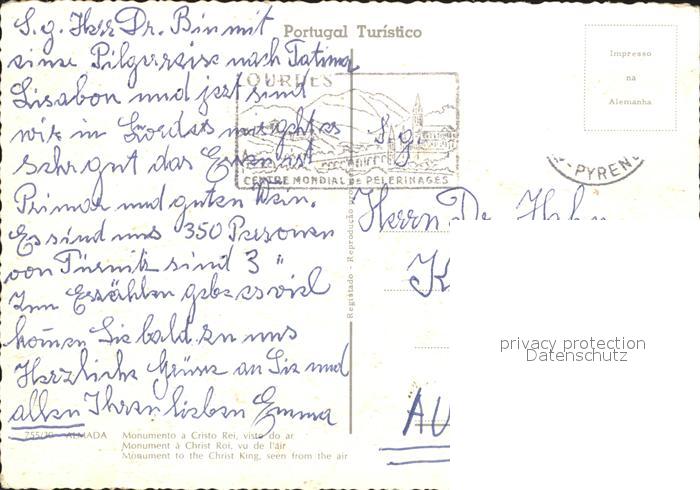 S. g. Herr Dr. Bin mit
einer Pilgerreise nach Fatima
Lisabon und jezt sind
wir in Lordes mir geht es
sehr gut das Essen ist
Prima und guten Wein.
Es sind uns 350 Personen
von Türnitz sind 3 "
Zum Erzählen gebe es viel
kommen Sie bald zu uns
Herzliche Grüsse an Sie und
allen Ihren lieben Emma
Portugal Turístico
Impresso
na
Alemanha
LOURDES
CENTRE MONDIAL DE PELERINAGES
PYREN
S.g.
Herrn Dr. Hahn
K
AU
Registado - Reprodução
privacy protection
Datenschutz
755/30 ALMADA Monumento a Cristo Rei, visto do ar
Monument à Christ Roi, vu de l'air
Monument to the Christ King, seen from the air